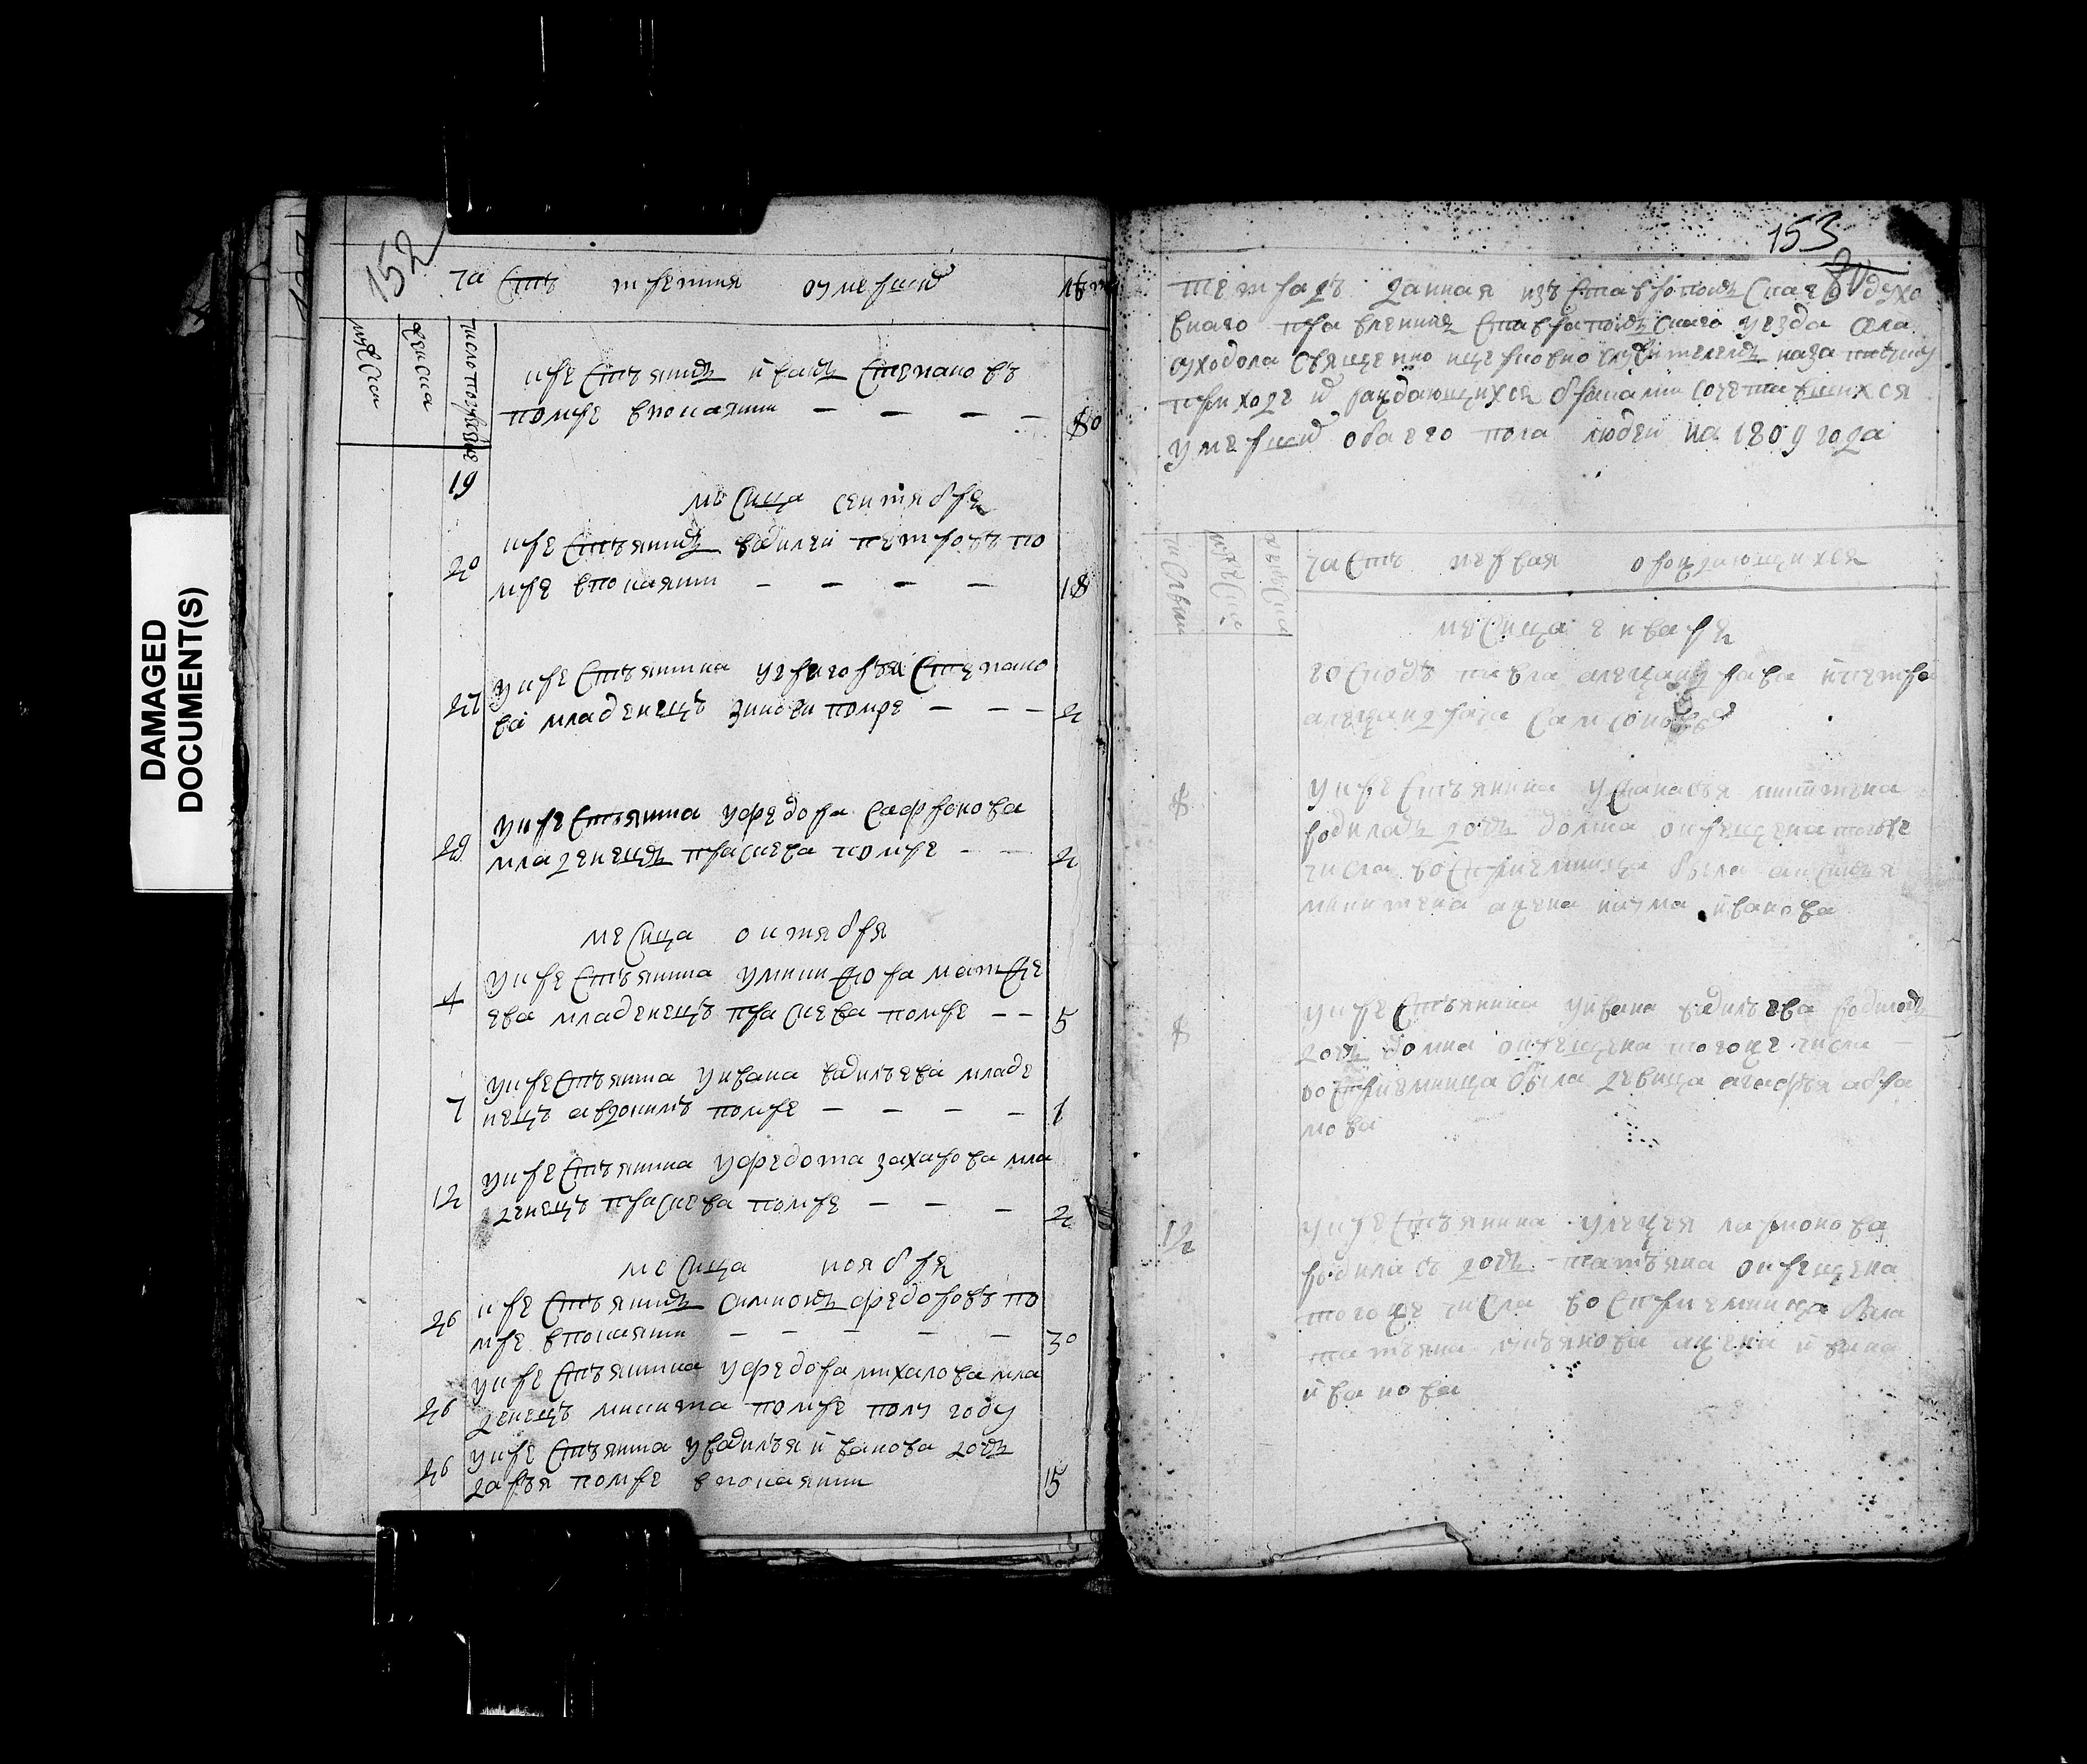 DAMAGED
DOCUMENT(S)
152
часть третия оумерших
мужска
женска
число погребе
крестьянинъ иванъ степановъ
помре впокаянии — — — — 80
19
месица сентября
20 крестьянинъ василей петровъ по
мре впокаянии — — — — 18
27 укрестьянина угригорья степано
ва младенецъ зинови помре — — — 2
29 укрестьянина уфедора сафронова
младенецъ праскева помре — — 2
месица октября
4 укрестьянина уникифора матфе
ева младенецъ праскева помре — — 5
7 укрестьянина уивана васильева младе
нецъ авдокимъ помре — — — — 1
12 укрестьянина уфедота захарова мла
денецъ праскева помре — — — 2
месица ноября
26 крестьянинъ симионъ федоровъ по
мре впокаянии — — — — — 30
26 укрестьянина уфедора михалова мла
денецъ никита помре полу году
26 укрестьянина увасилья иванова дочь
дарья помре впокаянии 15
153
тетрадь данная изъ ставропольскаго духо
внаго правления ставропольскаго уезда села
суходола священно ицерковно служителемъ назаписку
приходе и раждающихся браками сочетавшихся
умерших обаего пола людей на 1809 года
числы
мужска
женска
часть первая орождающихся
месица енваря
господъ павла александрава ипетра
александрава самсоновых
8 укрестьянина уафанасья никитена
родиласъ дочь домна окрещена тогоже
числа воспрiемница была аксинья
никитена жена козма иванова
8 укрестьянина уивана васильева родилась
дочь домна окрещена тогоже числа —
воспрiемница была девица агафья абра
мова
12 укрестьянина уалексея ларионова
родилась дочь татьяна окрещена
тогоже числа воспрiемница была
татьяна жена ивана
иванова